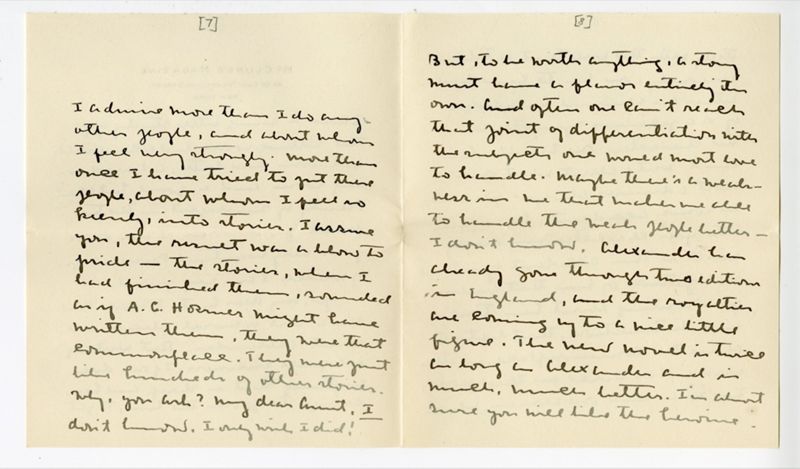 [7]
I admire more than I do any
other people, and about whom
I feel very strongly. More than
once I have tried to put these
people, about whom I feel so
keenly, into stories. I assure
you, the result was a blow to
pride — the stories, when I
had finished them, sounded
as if A. C. Hosmer might have
written them, they were that
commonplace. They were just
like hundreds of other stories.
Why, you ask? My dear Aunt, I
don't know. I only wish I did!
[8]
But, to be worth anything, a story
must have a flavor entirely its
own. And often one can't reach
that point of differentiation with
the subjects one would most love
to handle. Maybe there's a weak-
ness in me that makes me able
to handle the weak people better —
I don't know. Alexander has
already gone through two editions
in England, and the royalties
are coming up to a nice little
figure. The new novel is twice
as long as Alexander and is
much, much better. I'm almost
sure you will like the heroine.